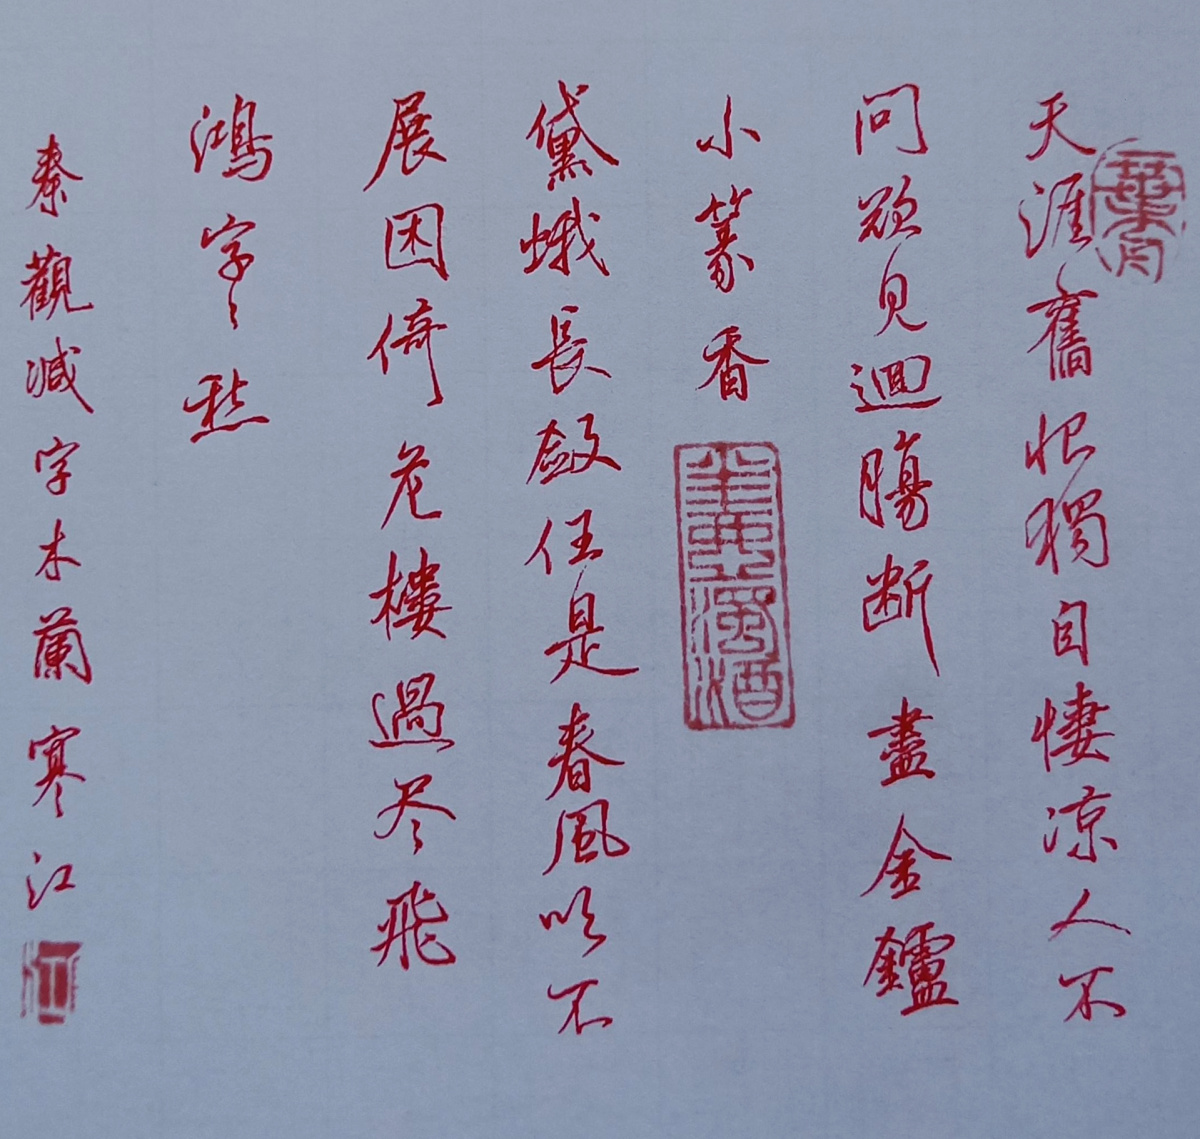 天涯舊恨獨自悽凉人不
問欲見迴膓断盡金鑪
小篆香
黛蛾長斂任是春風吹不
展困倚危樓過尽飛
鴻字〻愁
秦觀减字木蘭寒江